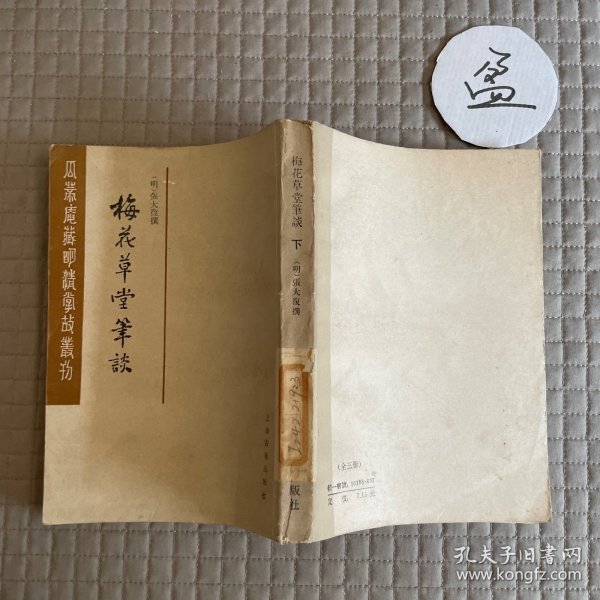 瓜蒂庵藏明清掌故叢刊
(明)張大復撰
梅花草堂筆談
上海古籍出版社
梅花草堂筆談 下
(明)張大復撰
版社
(全三册)
統一書號:10186·697
定價:7.15元
孔夫子旧书网
www.kongfz.com